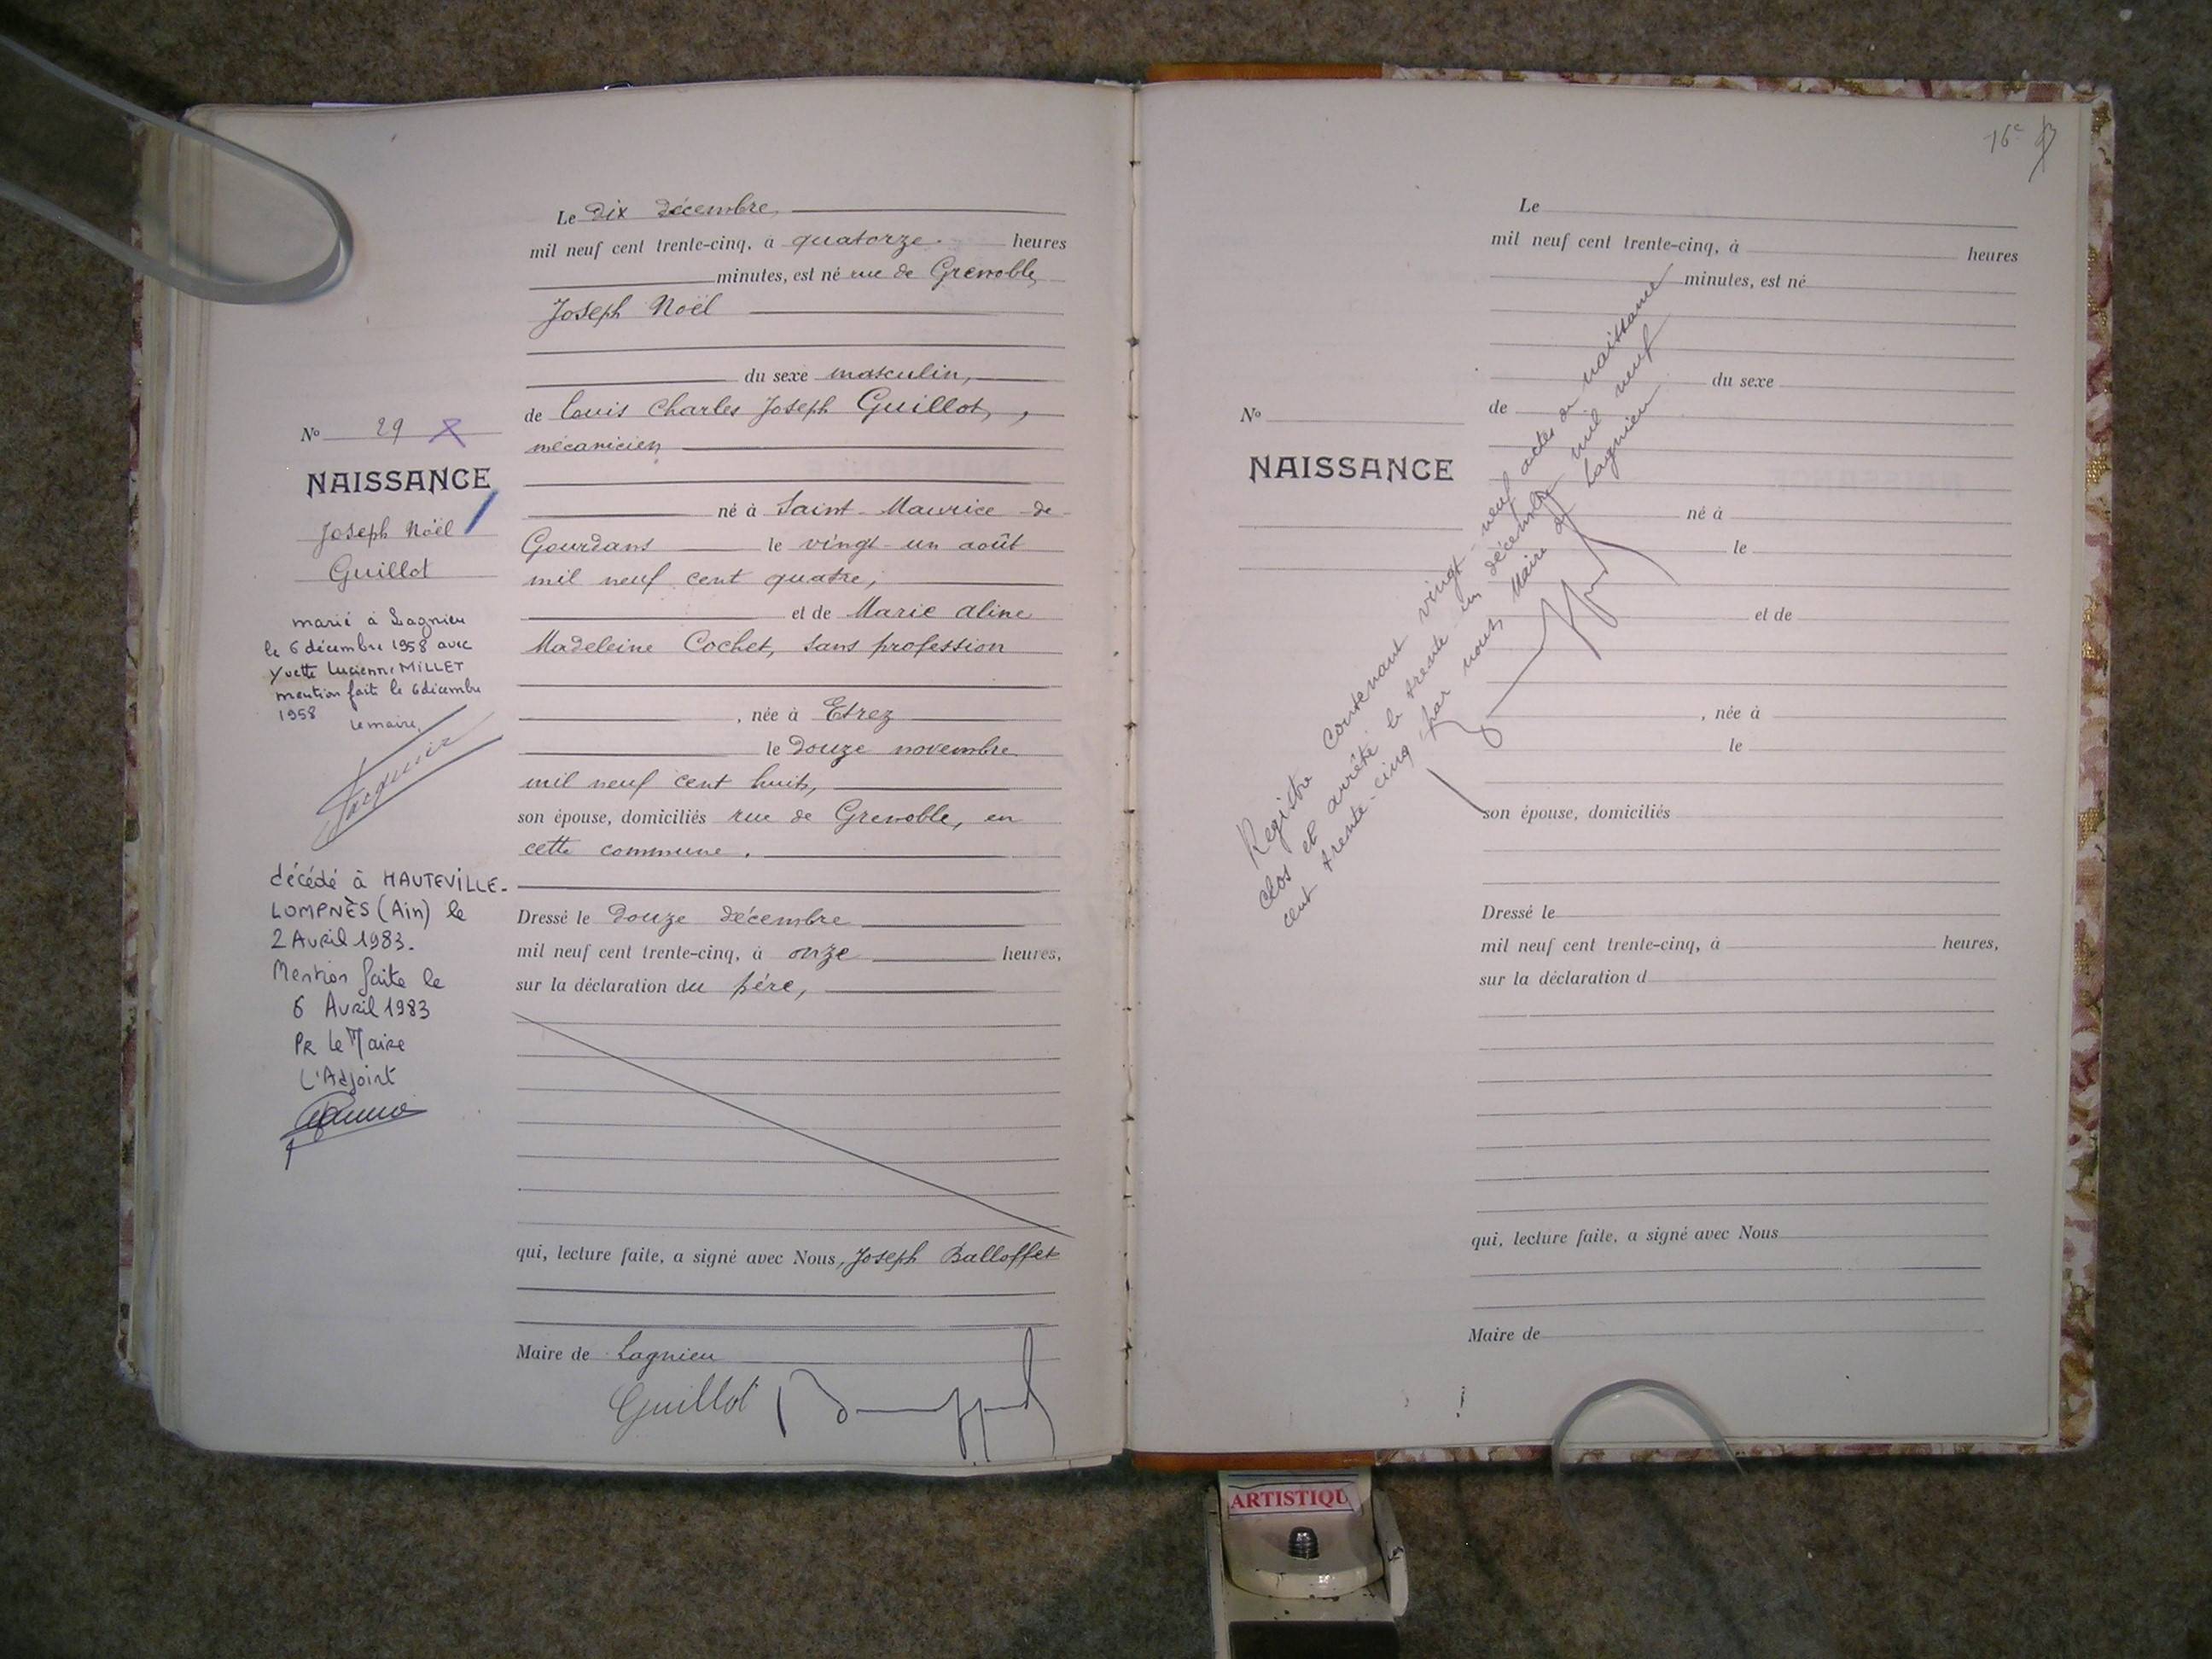 Le dix décembre,
mil neuf cent trente-cinq, à quatorze heures
minutes, est né rue de Grenoble,
Joseph Noël
du sexe masculin,
de Louis Charles Joseph Guillot,
mécanicien
né à Saint-Maurice-de-
Gourdans le vingt-un août
mil neuf cent quatre,
et de Marie Aline
Madeleine Cochet, sans profession
, née à Etrez
le douze novembre
mil neuf cent huit,
son épouse, domiciliés rue de Grenoble, en
cette commune.
Dressé le douze décembre
mil neuf cent trente-cinq, à onze heures,
sur la déclaration du père,
qui, lecture faite, a signé avec Nous, Joseph Balloffet
Maire de Lagnieu
Guillot
No 29
NAISSANCE
Joseph Noël
Guillot
marié à Lagnieu
le 6 décembre 1958 avec
Yvette Lucienne MILLET
mention faite le 6 décembre
1958
Le maire,
décédé à HAUTEVILLE-
LOMPNÈS (Ain) le
2 Avril 1983.
Mention faite le
6 Avril 1983
Pr Le Maire
L'Adjoint
16e
Le
mil neuf cent trente-cinq, à heures
minutes, est né
du sexe
de
né à
le
et de
, née à
le
son épouse, domiciliés
Dressé le
mil neuf cent trente-cinq, à heures,
sur la déclaration d
qui, lecture faite, a signé avec Nous
Maire de
No
NAISSANCE
Registre contenant vingt-neuf actes de naissance
clos et arrêté le trente un décembre mil neuf
cent trente-cinq par nous, Maire de Lagnieu
ARTISTIQU